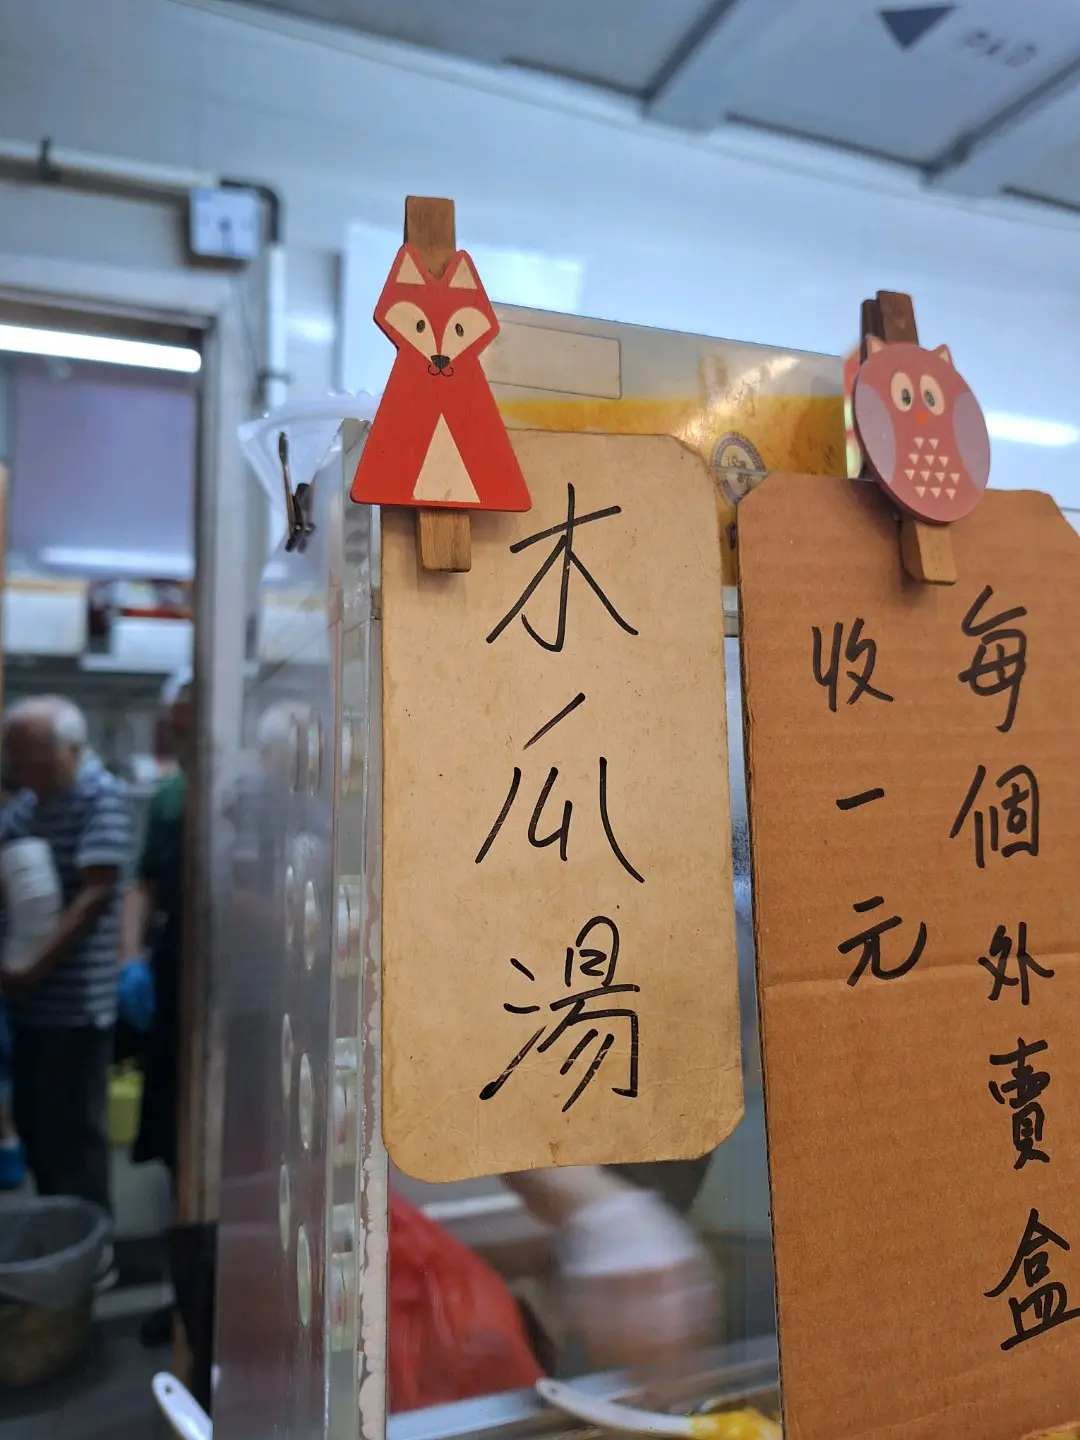 木瓜湯
每個外賣盒
收一元